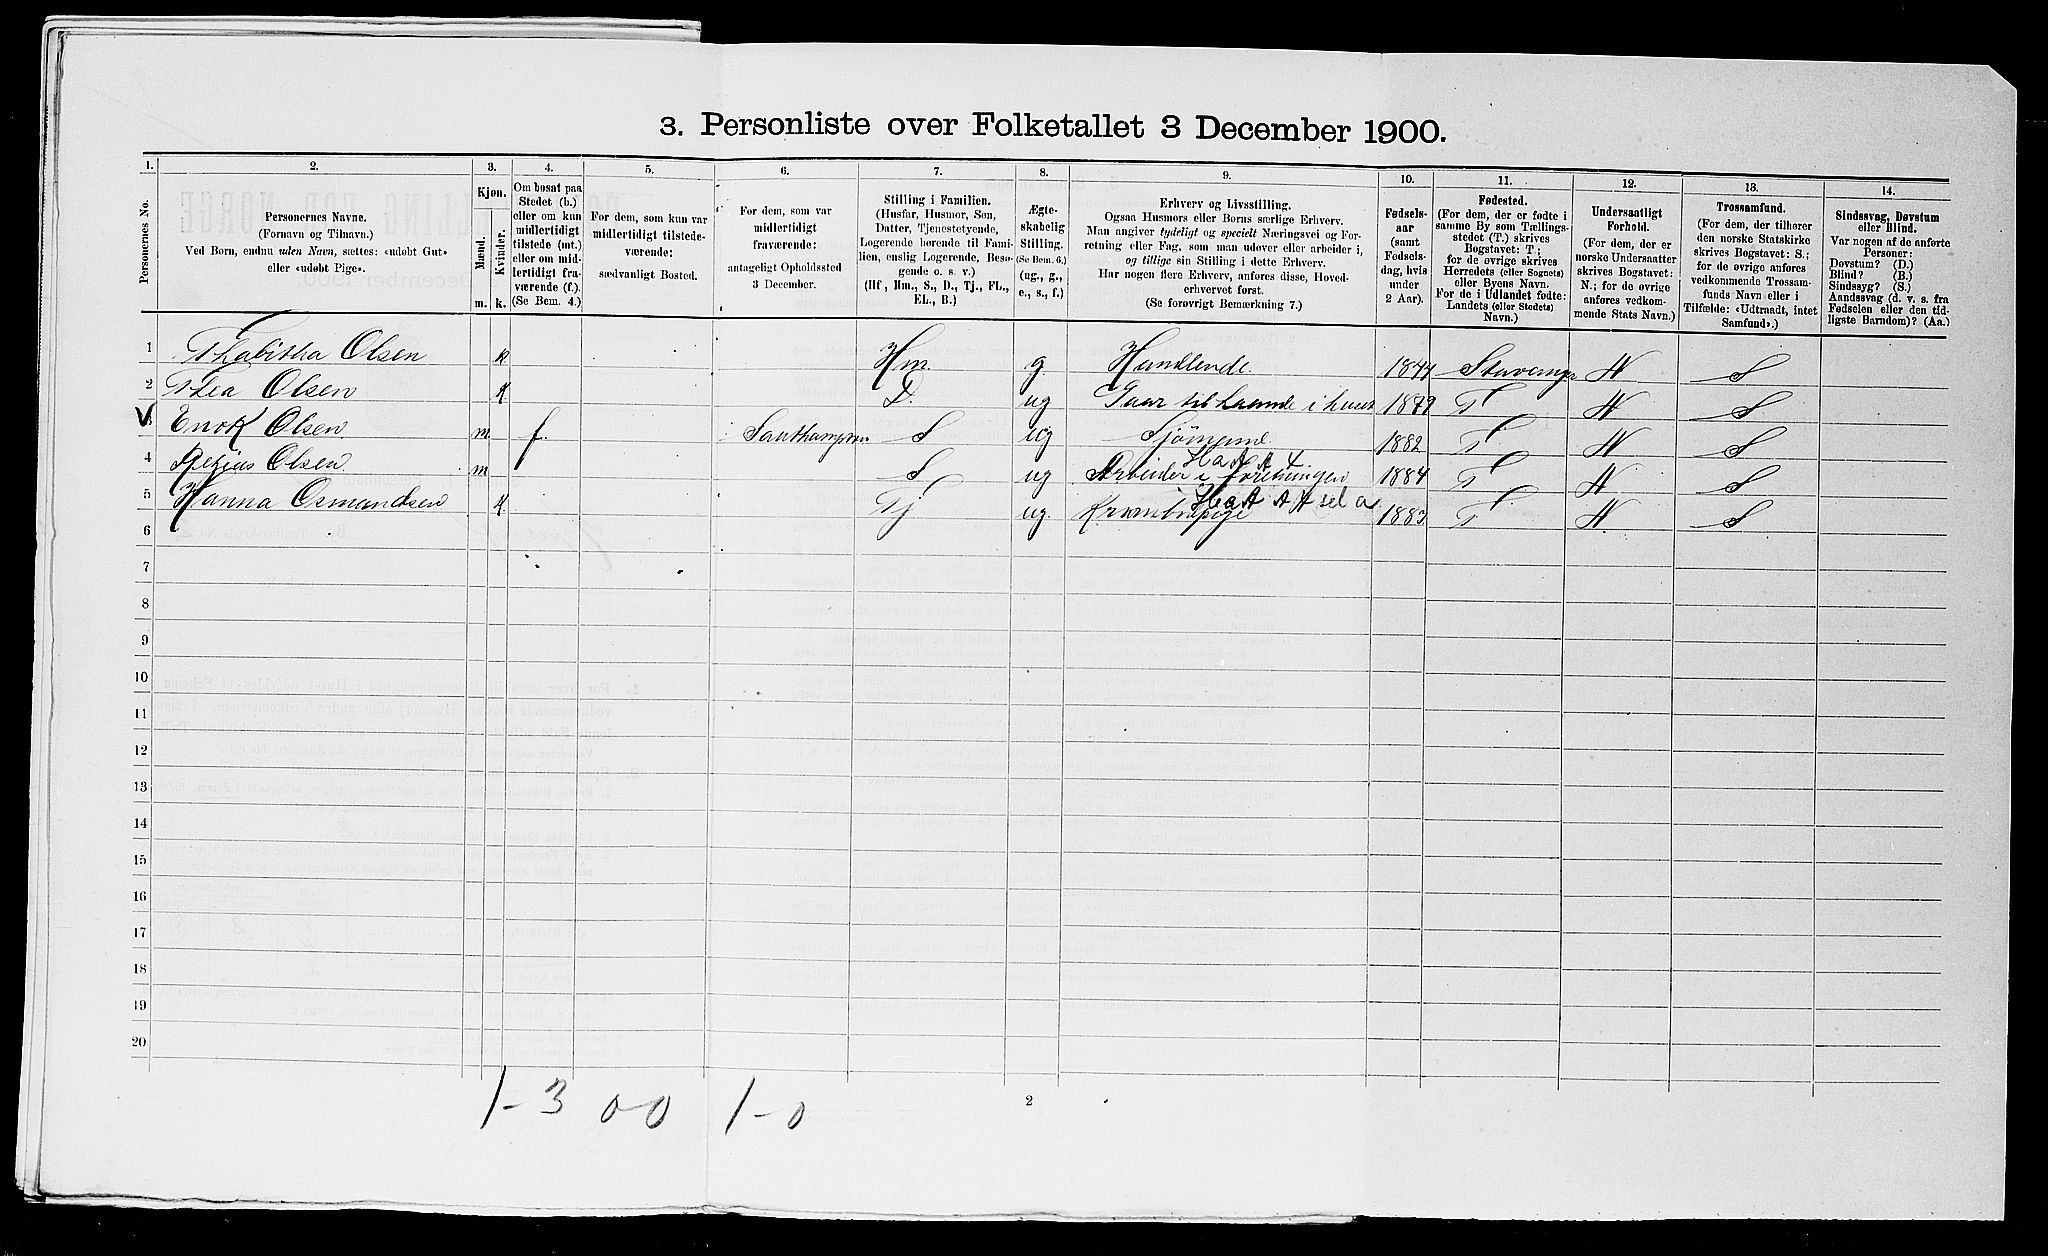 3. Personliste over Folketallet 3 December 1900.
1. 2. 3. 4. 5. 6. 7. 8. 9. 10. 11. 12. 13. 14.
Personernes No.
Personernes Navne.
(Fornavn og Tilnavn.)
Ved Børn, endnu uden Navn, sættes: «udøbt Gut»
eller «udøbt Pige».
Kjøn.
Mænd.
Kvinder.
m. k.
Om bosat paa
Stedet (b.)
eller om kun
midlertidigt
tilstede (mt.)
eller om mid-
lertidigt fra-
værende (f.).
(Se Bem. 4.)
For dem, som kun var
midlertidigt tilstede-
værende:
sædvanligt Bosted.
For dem, som var
midlertidigt
fraværende:
antageligt Opholdssted
3 December.
Stilling i Familien.
(Husfar, Husmor, Søn,
Datter, Tjenestetyende,
Logerende hørende til Fami-
lien, enslig Logerende, Besø-
gende o. s. v.)
(Hf, Hm., S., D., Tj., FL.,
EL., B.)
Ægte-
skabelig
Stilling.
(Se Bem. 6.)
(ug., g.,
e., s., f.)
Erhverv og Livsstilling.
Ogsaa Husmors eller Børns særlige Erhverv.
Man angiver tydeligt og specielt Næringsvei og For-
retning eller Fag, som man udøver eller arbeider i,
og tillige sin Stilling i dette Erhverv.
Har nogen flere Erhverv, anføres disse, Hoved-
erhvervet først.
(Se forøvrigt Bemærkning 7.)
Fødsels-
aar
(samt
Fødsels-
dag, hvis
under
2 Aar).
Fødested.
(For dem, der er fødte i
samme By som Tællings-
stedet (T.) skrives
Bogstavet: T;
for de øvrige skrives
Herredets (eller Sognets)
eller Byens Navn.
For de i Udlandet fødte:
Landets (eller Stedets)
Navn.)
Undersaatligt
Forhold.
(For dem, der er
norske Undersaatter
skrives Bogstavet:
N.; for de øvrige
anføres vedkom-
mende Stats Navn.)
Trossamfund.
(For dem, der tilhører
den norske Statskirke
skrives Bogstavet: S.;
for de øvrige anføres
vedkommende Trossam-
funds Navn eller i
Tilfælde: «Udtraadt, intet
Samfund».)
Sindssvag, Døvstum
eller Blind.
Var nogen af de anførte
Personer:
Døvstum? (D.)
Blind? (B.)
Sindssyg? (S.)
Aandssvag (d. v. s. fra
Fødselen eller den tid-
ligste Barndom)? (Aa.)
1 Thabitha Olsen k Hm. g. Handlende. 1844 Stavanger N S
2 Thea Olsen k. D. ug Gaar til haande i huset 1879 T N S
3 Enok Olsen m f. Southampton S ug Sjømand. 1882 T N S
4 Olsen m S ug Arbeider i foretningen 1884 T N S
5 Hanna Osmundsen k. Tj ug. Krambupige 1883 T N S
6
7
8
9
10
11
12
13
14
15
16
17
18
19
20
1 - 3 0 - 0 1 - 0
2